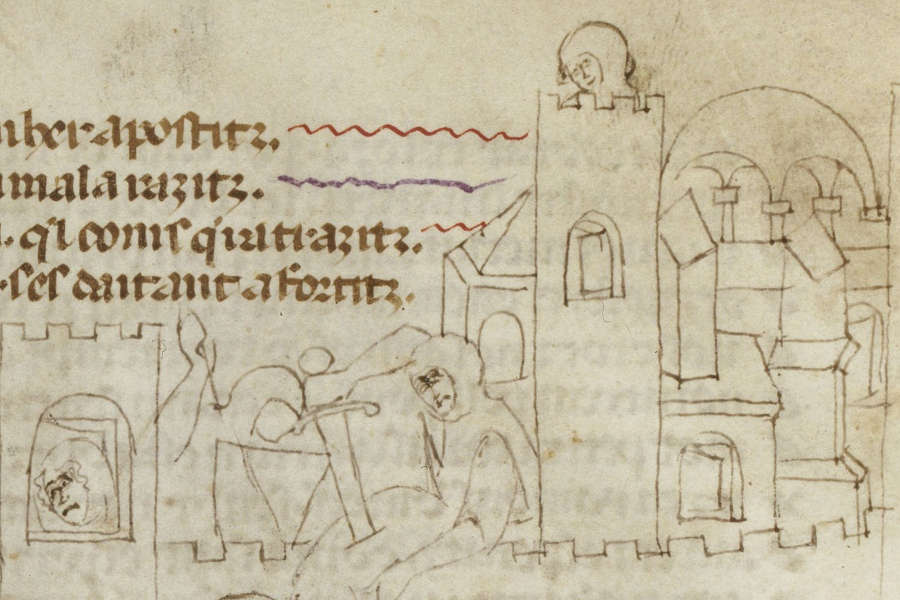 nher apostitz.
mala razitz.
q'l coms q'ra trazitz.
ses daitant afortitz.